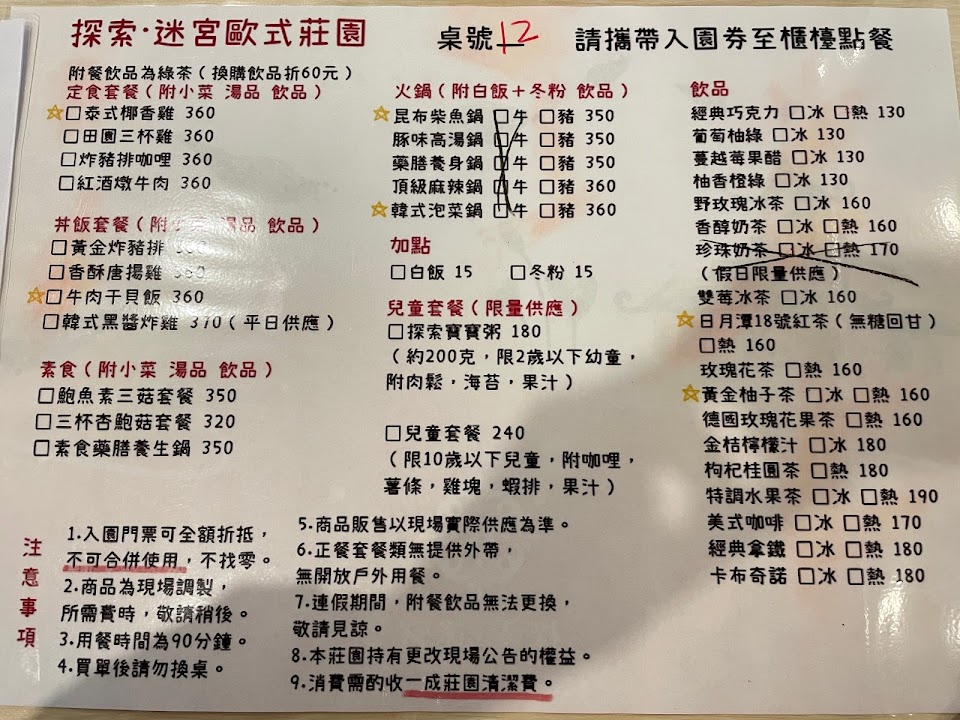 探索·迷宮歐式莊園
桌號 12
請攜帶入園券至櫃檯點餐
附餐飲品為綠茶(換購飲品折60元)
定食套餐(附小菜 湯品 飲品)
☆□泰式椰香雞 360
□田園三杯雞 360
□炸豬排咖哩 360
□紅酒燉牛肉 360
丼飯套餐(附 湯品 飲品)
□黃金炸豬排
□香酥唐揚雞
☆□牛肉干貝飯 360
□韓式黑醬炸雞 370(平日供應)
素食(附小菜 湯品 飲品)
□鮑魚素三菇套餐 350
□三杯杏鮑菇套餐 320
□素食藥膳養生鍋 350
火鍋(附白飯+冬粉 飲品)
☆昆布柴魚鍋 □牛 □豬 350
豚味高湯鍋 □牛 □豬 350
藥膳養身鍋 □牛 □豬 350
頂級麻辣鍋 □牛 □豬 360
☆韓式泡菜鍋 □牛 □豬 360
加點
□白飯 15 □冬粉 15
兒童套餐(限量供應)
□探索寶寶粥 180
(約200克,限2歲以下幼童,
附肉鬆,海苔,果汁)
□兒童套餐 240
(限10歲以下兒童,附咖哩,
薯條,雞塊,蝦排,果汁)
飲品
經典巧克力 □冰 □熱 130
葡萄柚綠 □冰 130
蔓越莓果醋 □冰 130
柚香橙綠 □冰 130
野玫瑰冰茶 □冰 160
香醇奶茶 □冰 □熱 160
珍珠奶茶 □冰 □熱 170
(假日限量供應)
雙莓冰茶 □冰 160
☆日月潭18號紅茶(無糖回甘)
□熱 160
玫瑰花茶 □熱 160
☆黃金柚子茶 □冰 □熱 160
德國玫瑰花果茶 □熱 160
金桔檸檬汁 □冰 180
枸杞桂圓茶 □熱 180
特調水果茶 □冰 □熱 190
美式咖啡 □冰 □熱 170
經典拿鐵 □冰 □熱 180
卡布奇諾 □冰 □熱 180
注意事項
1.入園門票可全額折抵,
不可合併使用,不找零。
2.商品為現場調製,
所需費時,敬請稍後。
3.用餐時間為90分鐘。
4.買單後請勿換桌。
5.商品販售以現場實際供應為準。
6.正餐套餐類無提供外帶,
無開放戶外用餐。
7.連假期間,附餐飲品無法更換,
敬請見諒。
8.本莊園持有更改現場公告的權益。
9.消費需酌收一成莊園清潔費。